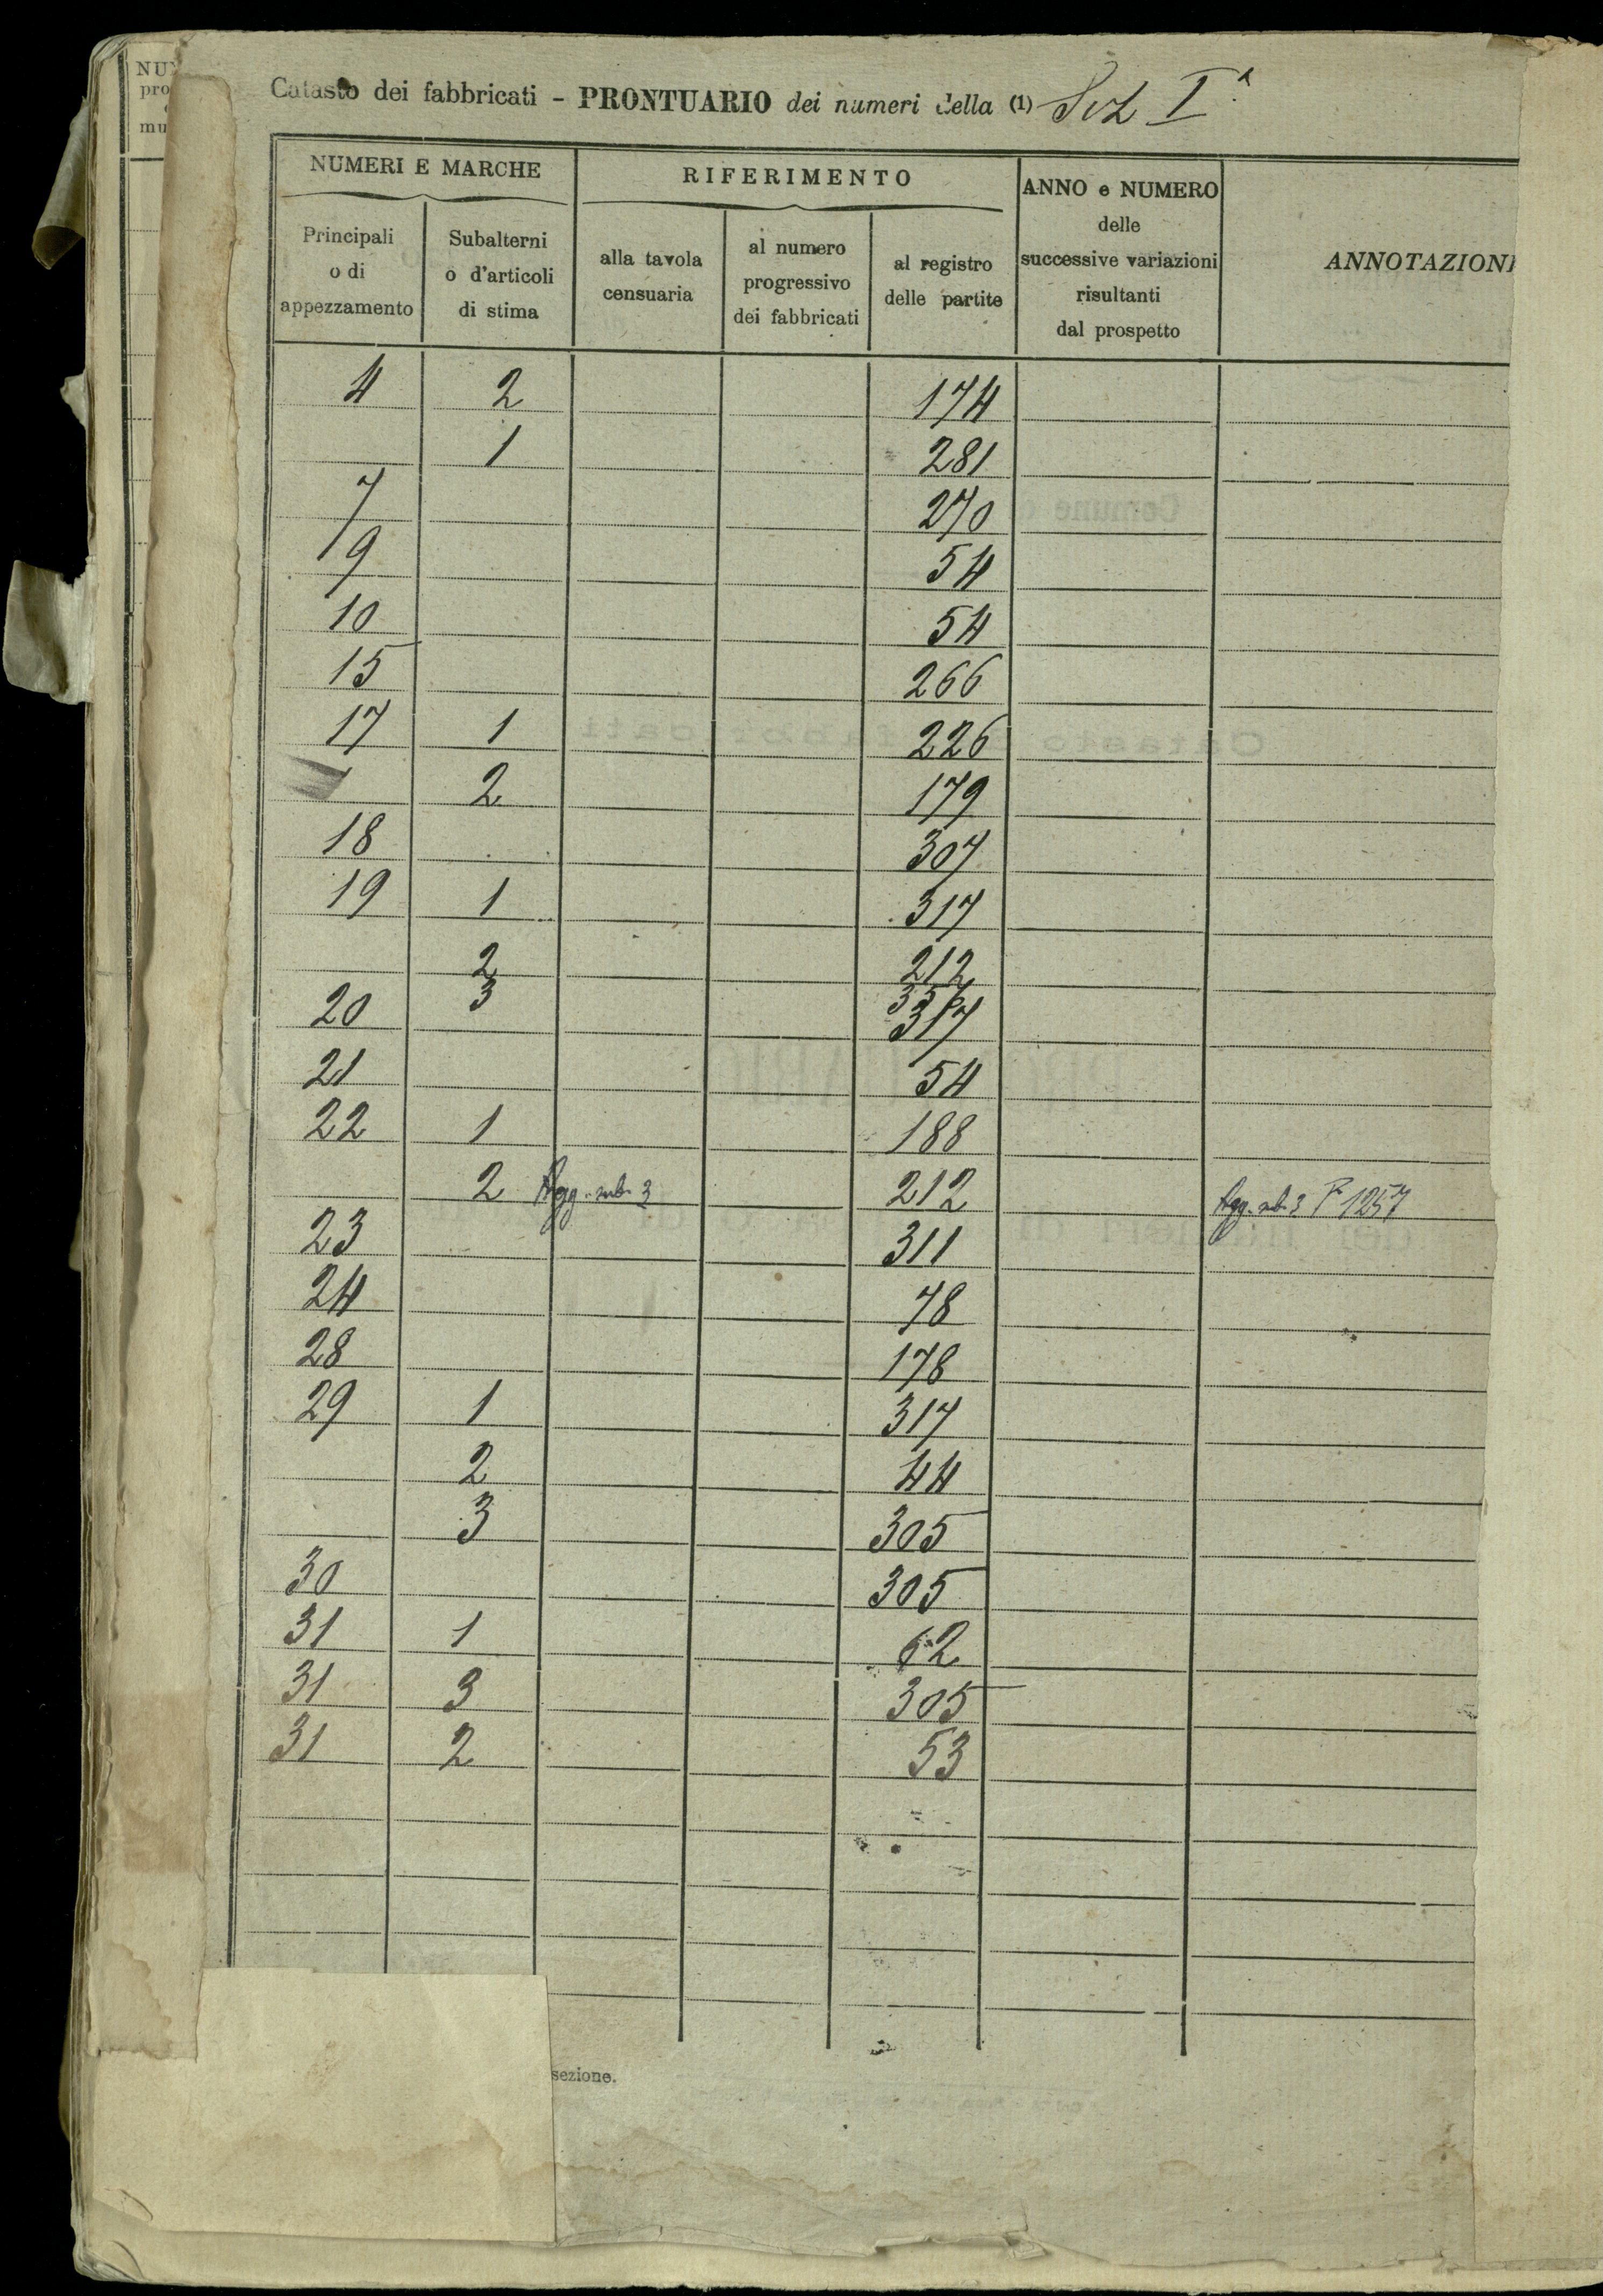 NU
pro
mu
Catasto dei fabbricati - PRONTUARIO dei numeri della (1) Sez I.a
NUMERI E MARCHE
RIFERIMENTO
ANNO e NUMERO
delle
successive variazioni
risultanti
dal prospetto
ANNOTAZIONI
Principali
o di
appezzamento
Subalterni
o d'articoli
di stima
alla tavola
censuaria
al numero
progressivo
dei fabbricati
al registro
delle partite
4 2 174
1 281
7 270
9 54
10 54
15 266
17 1 226
2 179
18 307
19 1 317
2 212
3
20 317
21 54
22 1 188
2 Agg. sub. 3 212 Agg. sub. 3 P 1257
23 311
24 78
28 178
29 1 317
2 44
3 305
30 305
31 1 62
31 3 305
31 2 53
sezione.